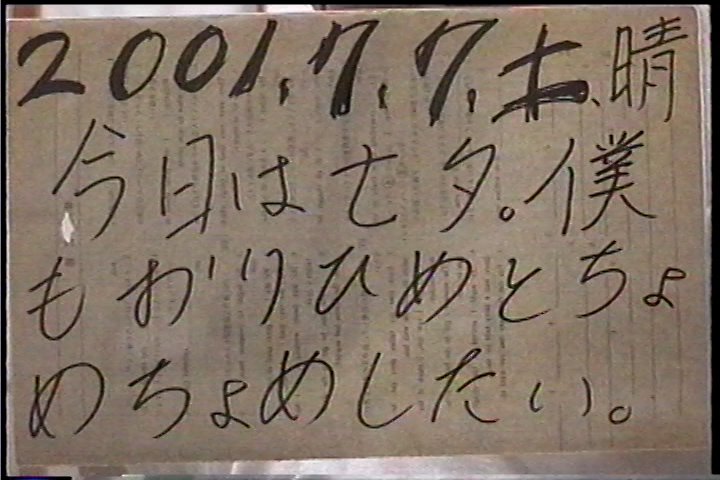 2001.7.7.土、晴
今日は七夕。僕
もおりひめとちょ
めちょめしたい。